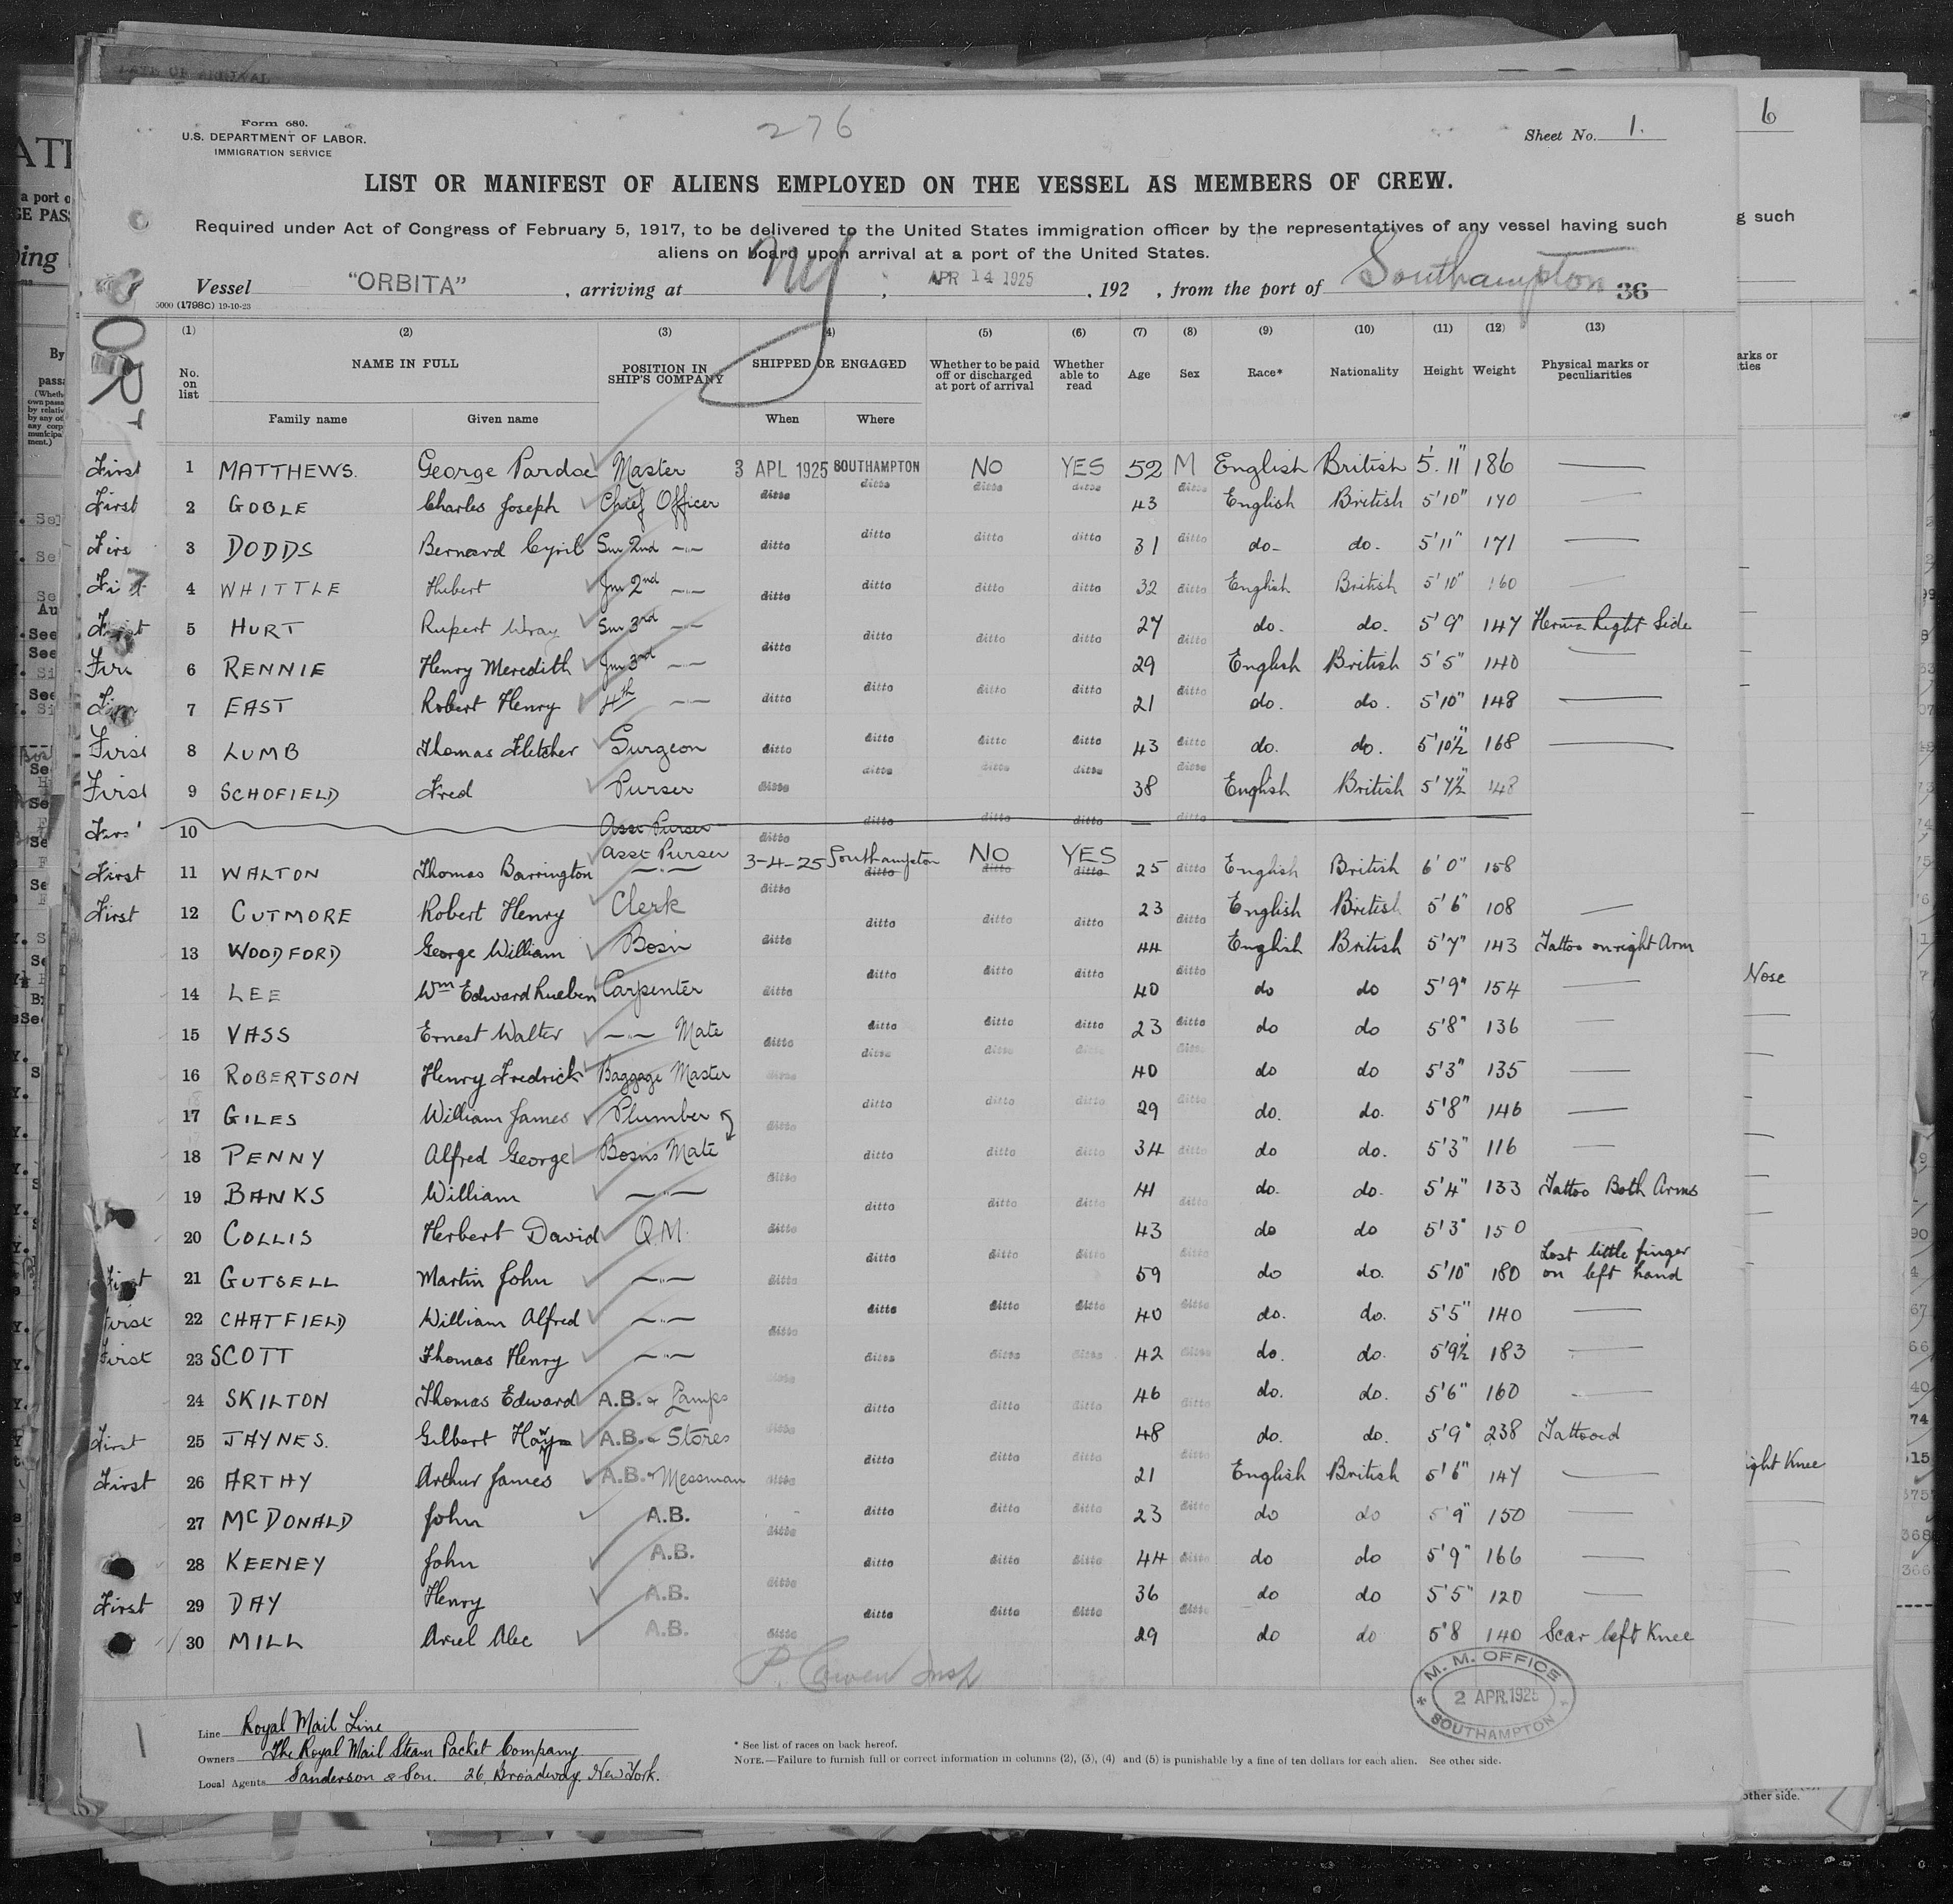 Form 680.
U.S. DEPARTMENT OF LABOR.
IMMIGRATION SERVICE
276
Sheet No. 1.
6
LIST OR MANIFEST OF ALIENS EMPLOYED ON THE VESSEL AS MEMBERS OF CREW.
Required under Act of Congress of February 5, 1917, to be delivered to the United States immigration officer by the representatives of any vessel having such
aliens on board upon arrival at a port of the United States.
Vessel "ORBITA", arriving at NY, APR 14 1925, 192 , from the port of Southampton 36
5000 (1798C) 19-10-23
(1) (2) (3) (4) (5) (6) (7) (8) (9) (10) (11) (12) (13)
No. on list NAME IN FULL POSITION IN SHIP'S COMPANY SHIPPED OR ENGAGED Whether to be paid off or discharged at port of arrival Whether able to read Age Sex Race* Nationality Height Weight Physical marks or peculiarities
Family name Given name When Where
First 1 MATTHEWS. George Pardoe Master 3 APL 1925 SOUTHAMPTON NO YES 52 M English British 5'.11" 186 —
First 2 GOBLE Charles Joseph Chief Officer ditto ditto ditto ditto 43 ditto English British 5'10" 170 —
Firs 3 DODDS Bernard Cyril Snr 2nd —"— ditto ditto ditto ditto 31 ditto do- do. 5'11" 171 —
4 WHITTLE Hubert Jnr 2nd —"— ditto ditto ditto ditto 32 ditto English British 5'10" 160 —
5 HURT Rupert Wray Snr 3rd —"— ditto ditto ditto ditto 27 ditto do. do. 5'9" 147 Hernia Right Side
6 RENNIE Henry Meredith Jnr 3rd —"— ditto 29 English British 5'5" 140 —
7 EAST Robert Henry 4th —"— ditto ditto ditto ditto 21 ditto do. do. 5'10" 148 —
First 8 LUMB Thomas Fletcher Surgeon ditto ditto ditto ditto 43 ditto do. do. 5'10½" 168 —
First 9 SCHOFIELD Fred Purser ditto ditto ditto ditto 38 ditto English British 5'7½" 148
Firs 10 Asst Purser ditto ditto ditto ditto ditto
First 11 WALTON Thomas Barrington Asst Purser —"— 3-4-25 Southampton ditto NO ditto YES ditto 25 ditto English British 6'0" 158
First 12 CUTMORE Robert Henry Clerk ditto ditto ditto ditto 23 ditto English British 5'6" 108 —
13 WOODFORD George William Bosn ditto 44 English British 5'7" 143 Tattoo on right Arm
14 LEE Wm Edward Rueben Carpenter ditto ditto ditto ditto 40 ditto do do 5'9" 154 —
15 VASS Ernest Walter —"— Mate ditto ditto ditto ditto 23 ditto do do 5'8" 136 —
16 ROBERTSON Henry Fredrick Baggage Master ditto ditto ditto ditto 40 ditto do do 5'3" 135 —
17 GILES William James Plumber ditto ditto ditto ditto 29 ditto do. do. 5'8" 146 —
18 PENNY Alfred George Bosns Mate ditto ditto ditto 34 ditto do do. 5'3" 116 —
19 BANKS William —"— ditto ditto ditto ditto 41 ditto do. do. 5'4" 133 Tattoo Both Arms
20 COLLIS Herbert David Q.M. ditto 43 do do 5'3" 150 —
First 21 GUTSELL Martin John —"— ditto ditto ditto ditto 59 ditto do do. 5'10" 180 Lost little finger on left hand
First 22 CHATFIELD William Alfred —"— ditto ditto ditto ditto 40 ditto do. do. 5'5" 140 —
First 23 SCOTT Thomas Henry —"— ditto ditto ditto 42 ditto do. do. 5'9½" 183 —
24 SKILTON Thomas Edward A.B. & Lamps ditto ditto ditto ditto 46 ditto do. do. 5'6" 160 —
First 25 JAYNES. Gilbert A.B. & Stores ditto 48 do. do. 5'9" 238 Tattooed
First 26 ARTHY Arthur James A.B. & Messman ditto ditto ditto ditto 21 ditto English British 5'6" 147 —
27 McDONALD John A.B. ditto ditto ditto 23 ditto do do 5'9" 150 —
28 KEENEY John A.B. ditto ditto ditto ditto 44 ditto do do 5'9" 166 —
First 29 DAY Henry A.B. ditto 36 do do 5'5" 120 —
30 MILL Ariel Alec A.B. ditto ditto ditto ditto 29 ditto do do 5'8 140 Scar left Knee
P. Cowen Insp
M. M. OFFICE
2 APR. 1925
SOUTHAMPTON
Line Royal Mail Line
Owners The Royal Mail Steam Packet Company
Local Agents Sanderson & Son. 26, Broadway. New York.
* See list of races on back hereof.
NOTE.—Failure to furnish full or correct information in columns (2), (3), (4) and (5) is punishable by a fine of ten dollars for each alien. See other side.
g such
arks or
ties
Nose
ight Knee
other side.